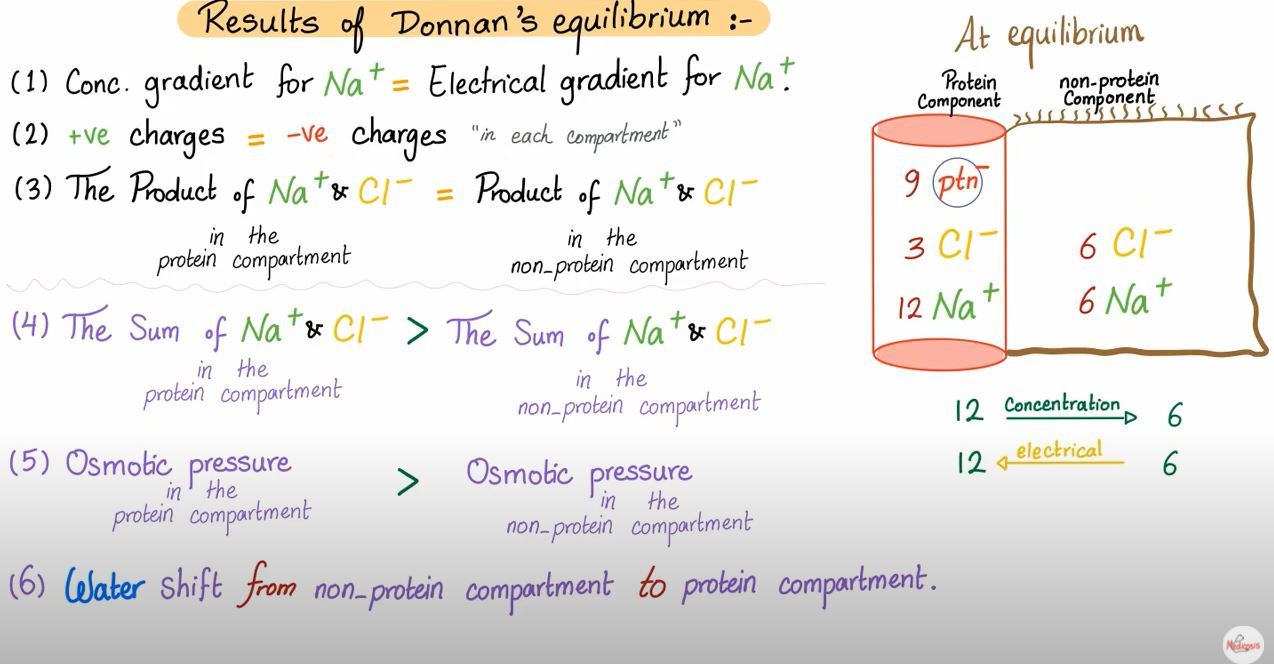 Results of Donnan's equilibrium :-
(1) Conc. gradient for Na+ = Electrical gradient for Na+.
(2) +ve charges = -ve charges "in each compartment"
(3) The Product of Na+ & Cl- = Product of Na+ & Cl-
in the
protein compartment
in the
non_protein compartment
(4) The Sum of Na+ & Cl- > The Sum of Na+ & Cl-
in the
protein compartment
in the
non_protein compartment
(5) Osmotic pressure > Osmotic pressure
in the
protein compartment
in the
non_protein compartment
(6) Water shift from non_protein compartment to protein compartment.
At equilibrium
Protein
Component
non-protein
Component
9 ptn-
3 Cl- 6 Cl-
12 Na+ 6 Na+
12 Concentration 6
12 electrical 6
Medicosis